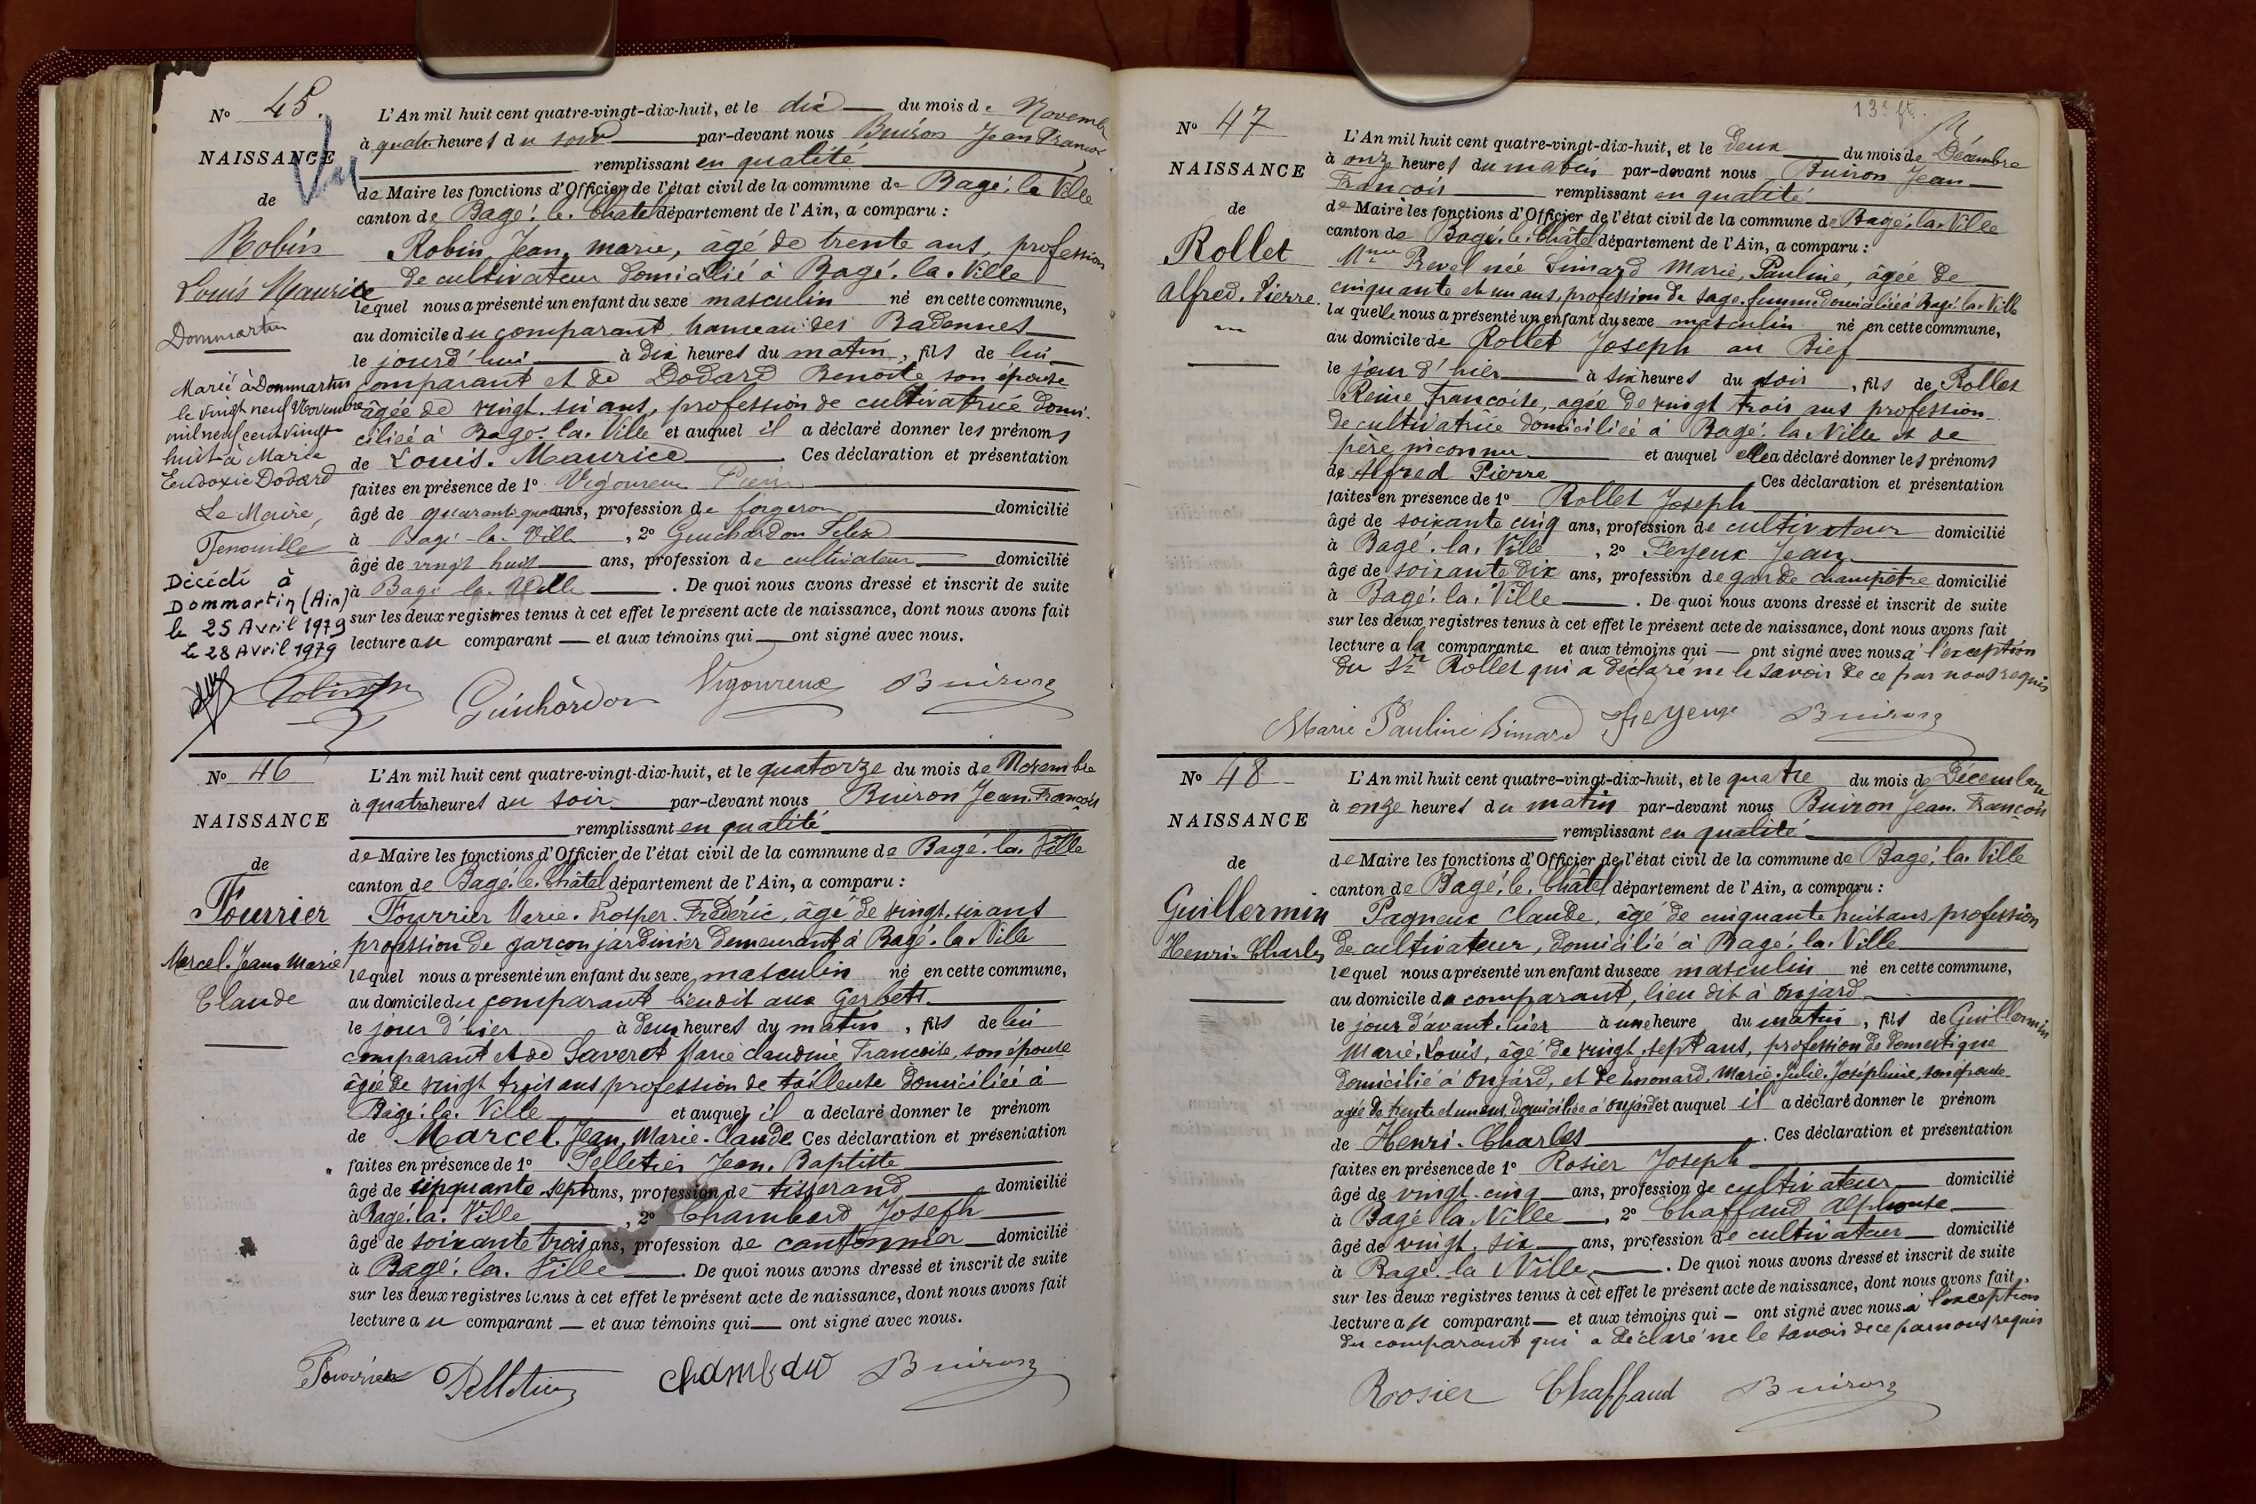 Nº 45.
NAISSANCE
Vu
de
Robin
Louis Maurice
Dommartin
Marié à Dommartin
le vingt neuf Novembre
mil neuf cent vingt
huit à Marie
Eudoxie Dodard
Le Maire,
Décédé à
Dommartin (Ain)
le 25 Avril 1979
le 28 Avril 1979
L'An mil huit cent quatre-vingt-dix-huit, et le dix du mois de Novembre
à quatre heures du soir par-devant nous Buiron Jean François
remplissant en qualité
de Maire les fonctions d'Officier de l'état civil de la commune de Bagé-la-Ville
canton de Bagé-le-Châtel département de l'Ain, a comparu :
Robin Jean, marie, âgé de trente ans, profession
de cultivateur domicilié à Bagé-la-Ville
lequel nous a présenté un enfant du sexe masculin né en cette commune,
au domicile du comparant, hameau des Badennes
le jourd'hui à dix heures du matin, fils de lui
comparant et de Dodard Benoite son épouse
âgée de vingt-six ans, profession de cultivatrice domi-
ciliée à Bagé-la-Ville et auquel il a déclaré donner les prénoms
de Louis-Maurice Ces déclaration et présentation
faites en présence de 1º Vigoureux Pierre
âgé de quarante quatre ans, profession de forgeron domicilié
à Bagé-la-Ville, 2º Guichardon Félix
âgé de vingt huit ans, profession de cultivateur domicilié
à Bagé-la-Ville. De quoi nous avons dressé et inscrit de suite
sur les deux registres tenus à cet effet le présent acte de naissance, dont nous avons fait
lecture au comparant et aux témoins qui ont signé avec nous.
Robin Guichardon Vigoureux Buiron
Nº 46
NAISSANCE
de
Fourrier
Marcel-Jean-Marie
Claude
L'An mil huit cent quatre-vingt-dix-huit, et le quatorze du mois de Novembre
à quatre heures du soir par-devant nous Buiron Jean-François
remplissant en qualité
de Maire les fonctions d'Officier de l'état civil de la commune de Bagé-la-Ville
canton de Bagé-le-Châtel département de l'Ain, a comparu :
Fourrier Marie-Prosper-Frédéric, âgé de vingt-six ans
profession de garçon jardinier demeurant à Bagé-la-Ville
lequel nous a présenté un enfant du sexe masculin né en cette commune,
au domicile du comparant lieu dit aux Gerbets
le jour d'hier à deux heures du matin, fils de lui
comparant et de Saveret Marie Claudine Françoise, son épouse
âgée de vingt trois ans profession de tailleuse domiciliée à
Bagé-la-Ville et auquel il a déclaré donner le prénom
de Marcel-Jean-Marie-Claude Ces déclaration et présentation
faites en présence de 1º Pelletier Jean-Baptiste
âgé de cinquante sept ans, profession de tisserand domicilié
à Bagé-la-Ville, 2º Chambard Joseph
âgé de soixante trois ans, profession de cantonnier domicilié
à Bagé-la-Ville. De quoi nous avons dressé et inscrit de suite
sur les deux registres tenus à cet effet le présent acte de naissance, dont nous avons fait
lecture au comparant et aux témoins qui ont signé avec nous.
Fourrier Pelletier Buiron
13e ft.
Nº 47
NAISSANCE
de
Rollet
Alfred-Pierre
L'An mil huit cent quatre-vingt-dix-huit, et le deux du mois de Décembre
à onze heures du matin par-devant nous Buiron Jean
François remplissant en qualité
de Maire les fonctions d'Officier de l'état civil de la commune de Bagé-la-Ville
canton de Bagé-le-Châtel département de l'Ain, a comparu :
Mme Revel née Simard Marie, Pauline, âgée de
cinquante et un ans, profession de sage-femme domiciliée à Bagé-la-Ville
laquelle nous a présenté un enfant du sexe masculin né en cette commune,
au domicile de Rollet Joseph au Bief
le jour d'hier à six heures du soir, fils de Rollet
Reine Françoise, agée de vingt trois ans profession
de cultivatrice domiciliée à Bagé-la-Ville et de
père inconnu et auquel elle a déclaré donner les prénoms
de Alfred Pierre Ces déclaration et présentation
faites en présence de 1º Rollet Joseph
âgé de soixante cinq ans, profession de cultivateur domicilié
à Bagé-la-Ville, 2º Feyeux Jean
âgé de soixante dix ans, profession de garde champêtre domicilié
à Bagé-la-Ville. De quoi nous avons dressé et inscrit de suite
sur les deux registres tenus à cet effet le présent acte de naissance, dont nous avons fait
lecture a la comparante et aux témoins qui ont signé avec nous à l'exception
du Sr Rollet qui a déclaré ne le savoir de ce par nous requis
Marie Pauline Simard Feyeux Buiron
Nº 48
NAISSANCE
de
Guillermin
Henri-Charles
L'An mil huit cent quatre-vingt-dix-huit, et le quatre du mois de Décembre
à onze heures du matin par-devant nous Buiron Jean-François
remplissant en qualité
de Maire les fonctions d'Officier de l'état civil de la commune de Bagé-la-Ville
canton de Bagé-le-Châtel département de l'Ain, a comparu :
Pagneux Claude, âgé de cinquante huit ans profession
de cultivateur, domicilié à Bagé-la-Ville
lequel nous a présenté un enfant du sexe masculin né en cette commune,
au domicile du comparant, lieu dit à Onjard
le jour d'avant-hier à une heure du matin, fils de Guillermin
Marie, Louis, âgé de vingt sept ans, profession de domestique
domicilié à Onjard, et de Marie-Julie-Joséphine, son épouse
agée de trente et un ans, domiciliée à Onjard et auquel il a déclaré donner le prénom
de Henri-Charles. Ces déclaration et présentation
faites en présence de 1º Rosier Joseph
âgé de vingt-cinq ans, profession de cultivateur domicilié
à Bagé la Ville, 2º Chaffaud Alphonse
âgé de vingt-six ans, profession de cultivateur domicilié
à Bagé-la Ville. De quoi nous avons dressé et inscrit de suite
sur les deux registres tenus à cet effet le présent acte de naissance, dont nous avons fait
lecture au comparant et aux témoins qui ont signé avec nous à l'exception
du comparant qui a déclaré ne le savoir de ce par nous requis
Rosier Chaffaud Buiron